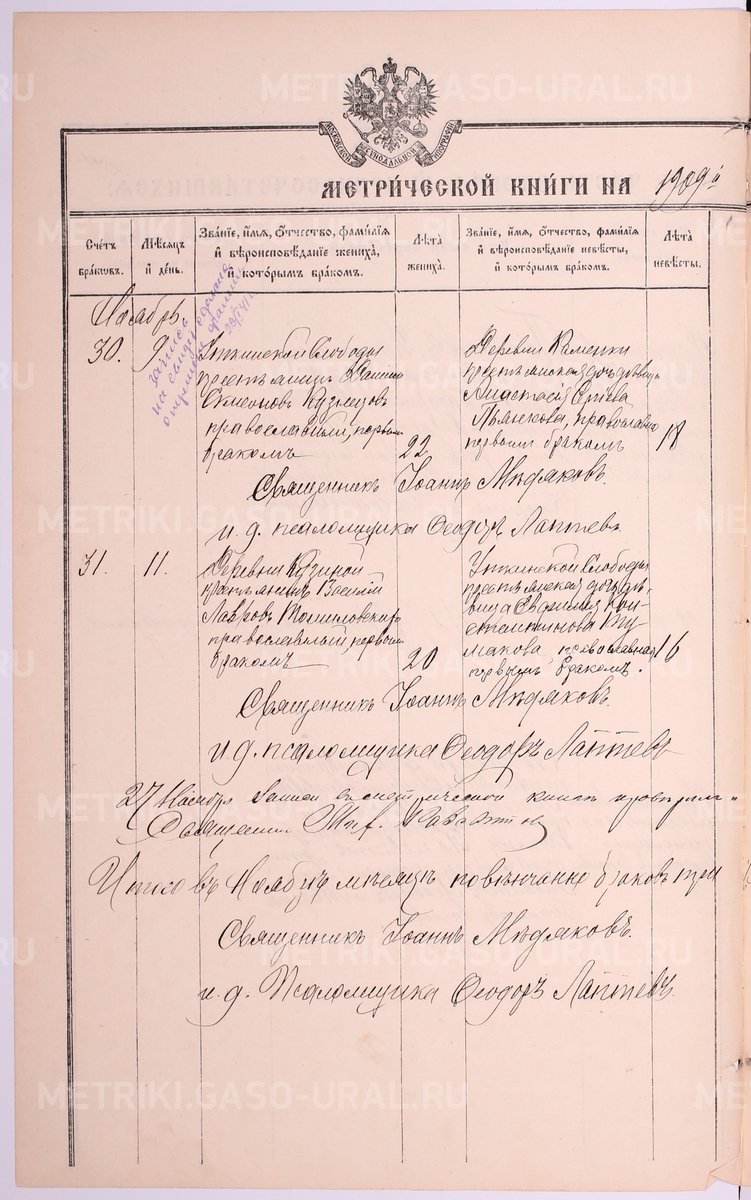 МОСКОВСКОЙ СѴНОДАЛЬНОЙ ТИПОГРАФІИ
МЕТРИ́ЧЕСКОЙ КНИ́ГИ НА 1909 й
Сче́тъ бра́ковъ.
Мѣ́сяцъ и҆ де́нь.
Зва́нїе, и҆́мя, ѻ҆́тчество, фами́лїя
и҆ вѣроисповѣ́данїе жениха̀,
и҆ кото́рымъ бра́комъ.
Лѣ́та жениха̀.
Зва́нїе, и҆́мя, ѻ҆́тчество, фами́лїя
и҆ вѣроисповѣ́данїе невѣ́сты,
и҆ кото́рымъ бра́комъ.
Лѣ́та невѣ́сты.
Ноябрь
запись
на
30.
9
Уткинской Слободы
крестьянинъ
Симеоновъ Кузнецовъ
православный, первымъ
бракомъ
22
Деревни Каменки
крестьянская дочь девица
Анастасія
Пьянкова, православная
первымъ бракомъ
18
Священникъ Іоаннъ Мидяковъ.
и. д. псаломщика Ѳеодоръ Лаптевъ
31.
11.
Деревни Кузиной
крестьянинъ Василій
Лавровъ Томиловскихъ
православный, первымъ
бракомъ
20
Уткинской Слободы
крестьянская дочь дѣ-
вица Евфимія Кон-
стантинова Ту-
макова православная
первымъ бракомъ.
16
Священникъ Іоаннъ Мидяковъ.
и. д. псаломщика Ѳеодоръ Лаптевъ
27 Ноября записи въ метрической книгѣ
Священникъ
Итого въ Ноябрѣ мѣсяцѣ повѣнчано браковъ три
Священникъ Іоаннъ Мидяковъ.
и. д. Псаломщика Ѳеодоръ Лаптевъ.
METRIKI.GASO-URAL.RU